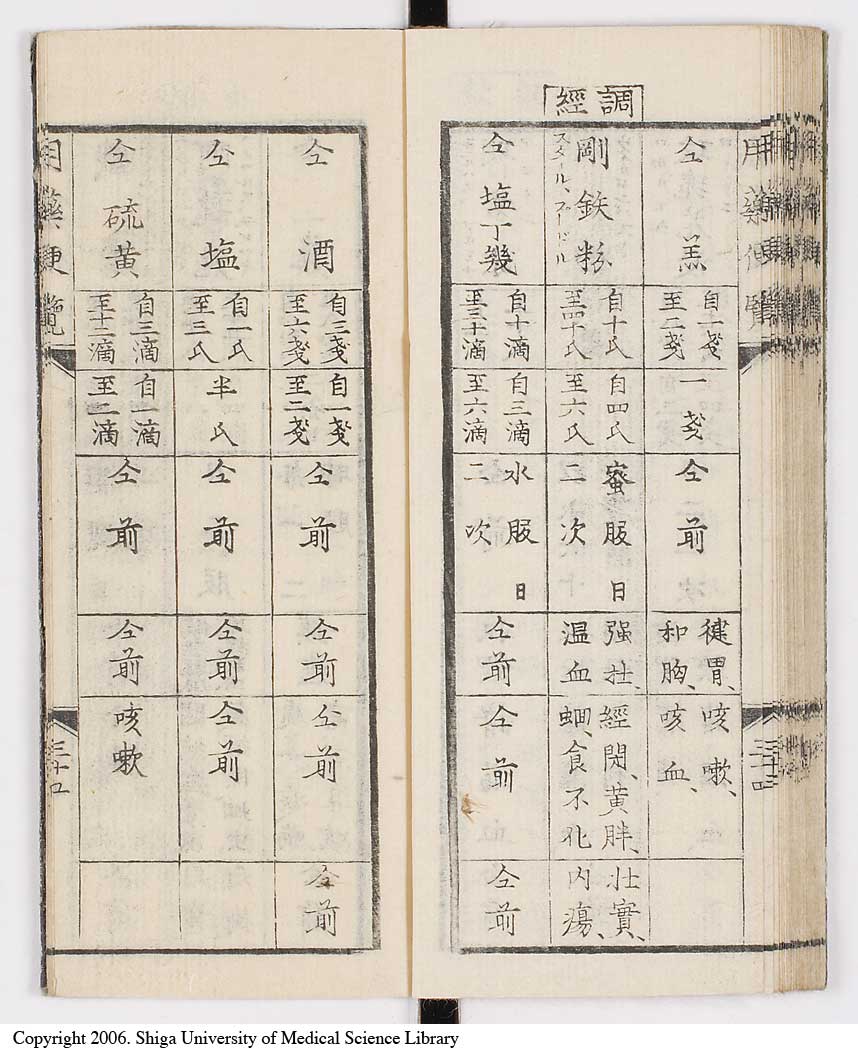 調經
仝 羔
自一戔
至二戔
一戔
仝前
健胃、
和胸、
咳嗽、
咳血、
剛鉄粉
スタール、プードル
自十氏
至四十氏
自四氏
至六氏
蜜服日
二次
强壮、
温血
經閉、黄胖、
蛔、食不化
壮實、
内瘍、
仝 塩丁幾
自十滴
至三十滴
自三滴
至六滴
水服日
二次
仝前
仝前
仝前
用藥便覧
三十三
仝 酒
自三戔
至六戔
自一戔
至二戔
仝前
仝前
仝前
仝前
仝 塩
自一氏
至三氏
半氏
仝前
仝前
仝前
仝 硫黄
自三滴
至十二滴
自一滴
至二滴
仝前
仝前
咳嗽
用藥便覧
三十四
Copyright 2006. Shiga University of Medical Science Library